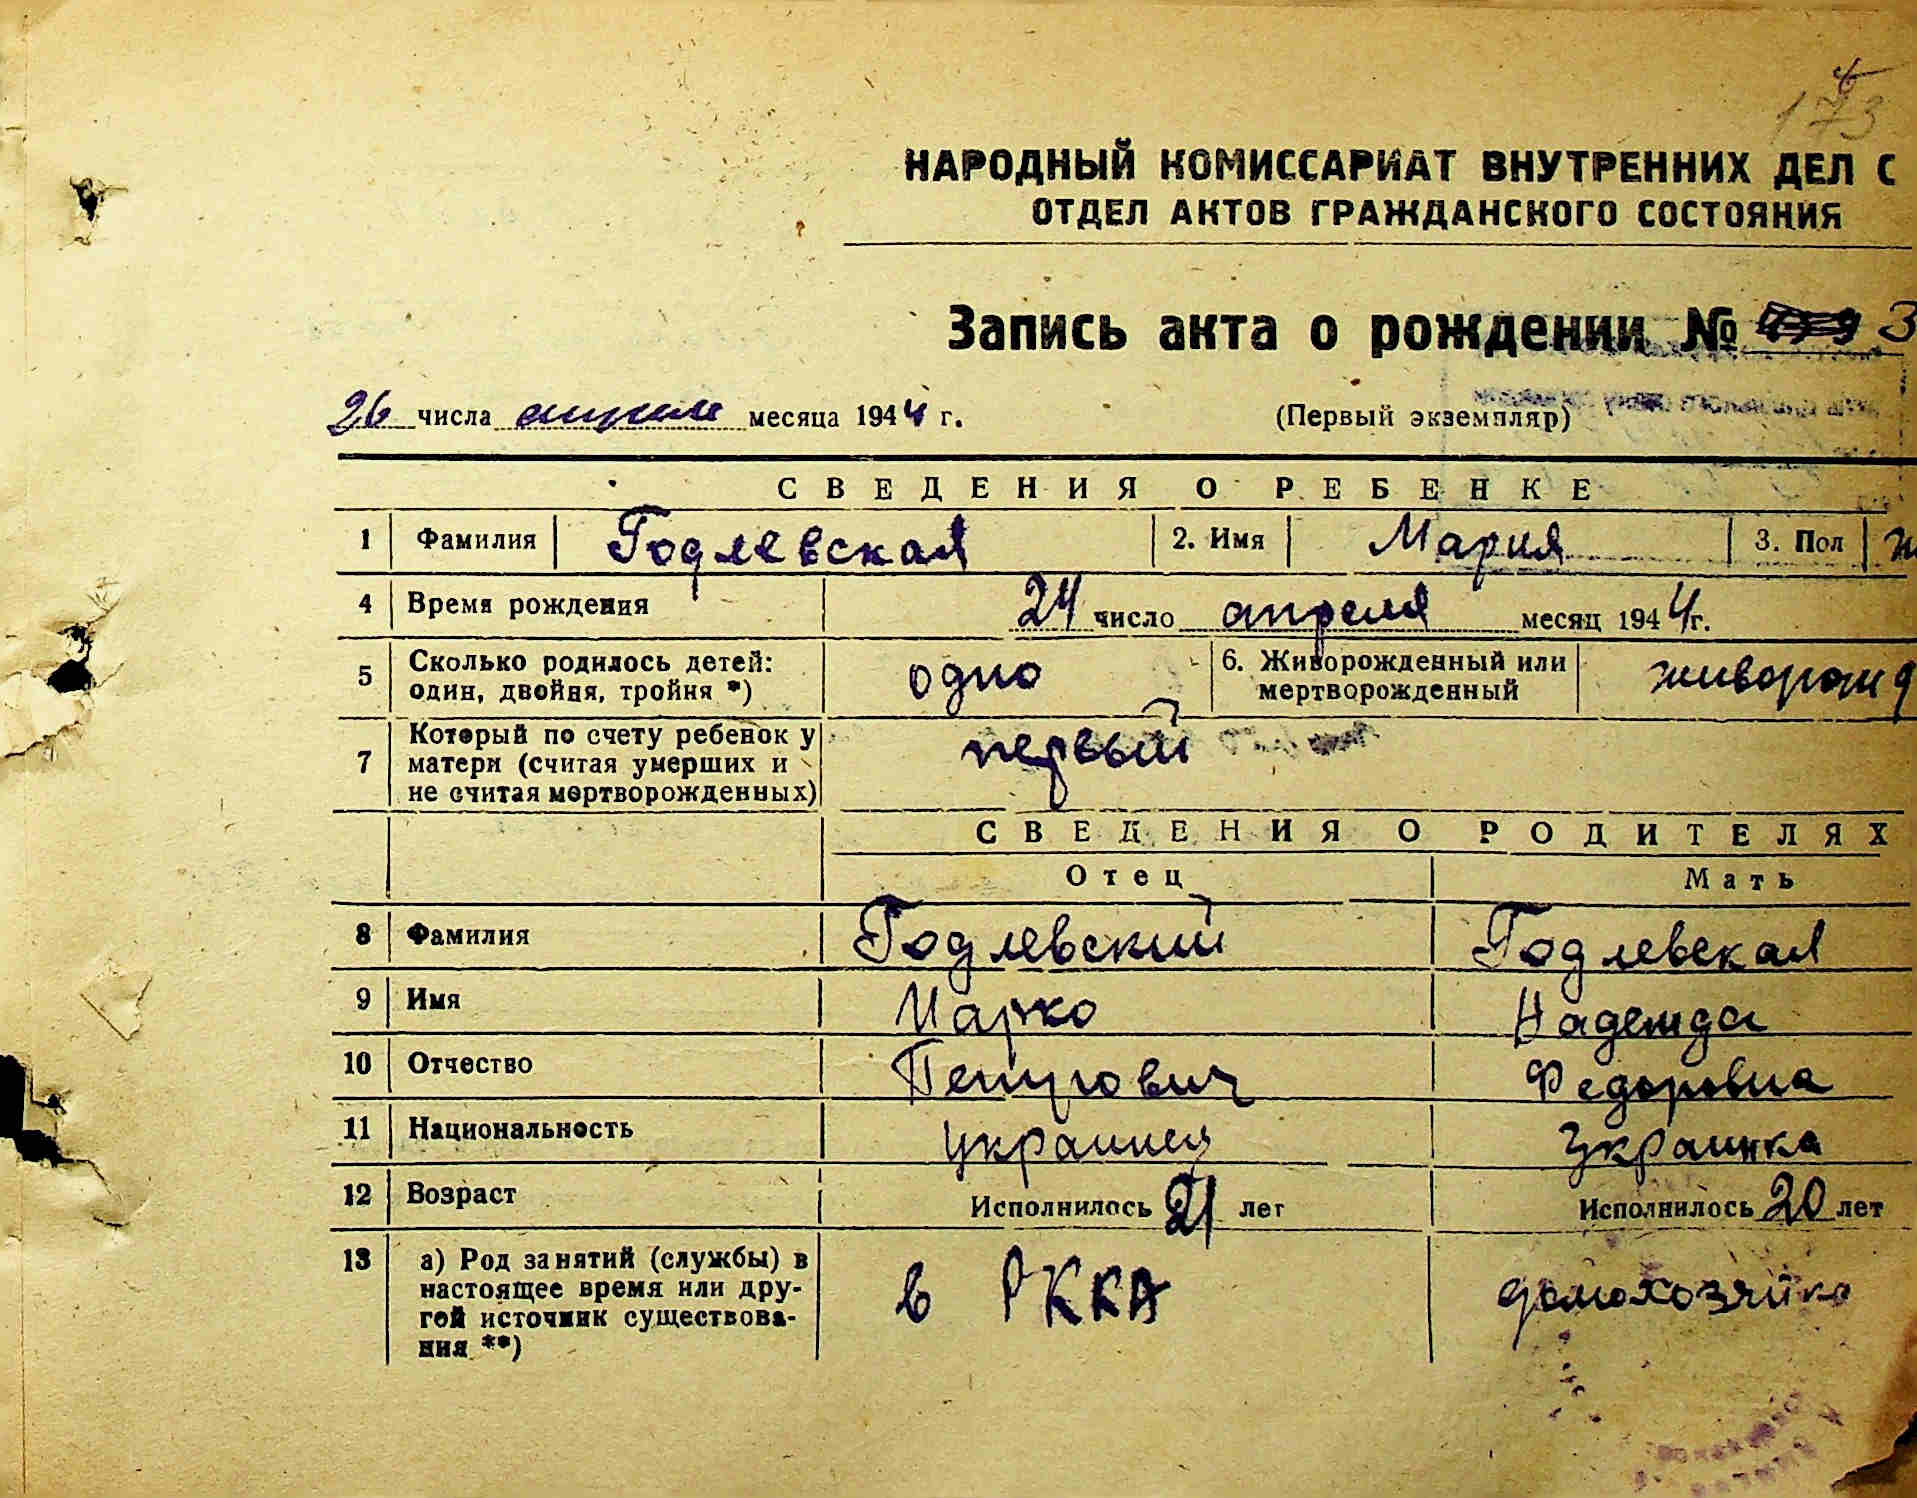 173
НАРОДНЫЙ КОМИССАРИАТ ВНУТРЕННИХ ДЕЛ С
ОТДЕЛ АКТОВ ГРАЖДАНСКОГО СОСТОЯНИЯ
Запись акта о рождении № 3
26 числа апреля месяца 1944 г. (Первый экземпляр)
СВЕДЕНИЯ О РЕБЕНКЕ
1 Фамилия Годлевская 2. Имя Мария 3. Пол ж
4 Время рождения 24 число апреля месяц 1944 г.
5 Сколько родилось детей: один, двойня, тройня *) одно 6. Живорожденный или мертворожденный живорожд
7 Который по счету ребенок у матери (считая умерших и не считая мертворожденных) первый
СВЕДЕНИЯ О РОДИТЕЛЯХ
Отец Мать
8 Фамилия Годлевский Годлевская
9 Имя Марко Надежда
10 Отчество Петрович Федоровна
11 Национальность украинец Украинка
12 Возраст Исполнилось 21 лет Исполнилось 20 лет
13 а) Род занятий (службы) в настоящее время или дру-
гой источник существова-
ния **) в РККА домохозяйка